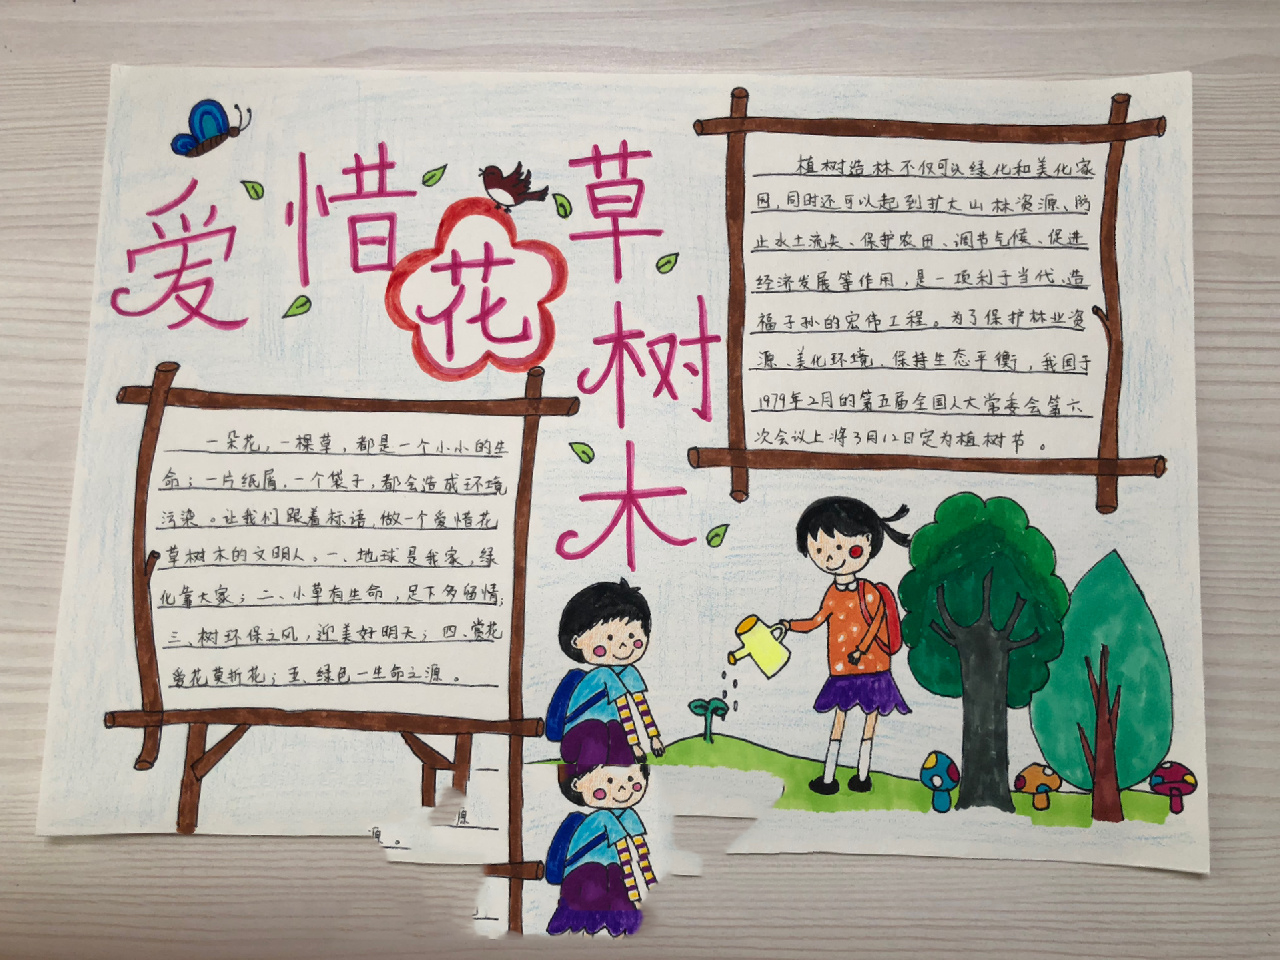 爱惜花草树木
植树造林不仅可以绿化和美化家
园,同时还可以起到扩大山林资源、防
止水土流失、保护农田、调节气候、促进
经济发展等作用,是一项利于当代、造
福子孙的宏伟工程。为了保护林业资
源、美化环境、保持生态平衡,我国于
1979年2月的第五届全国人大常委会第六
次会议上将3月12日定为植树节。
一朵花,一棵草,都是一个小小的生
命;一片纸屑,一个袋子,都会造成环境
污染。让我们跟着标语,做一个爱惜花
草树木的文明人。一、地球是我家,绿
化靠大家;二、小草有生命,足下多留情;
三、树环保之风,迎美好明天;四、赏花
爱花莫折花;五、绿色—生命之源。
源
源。